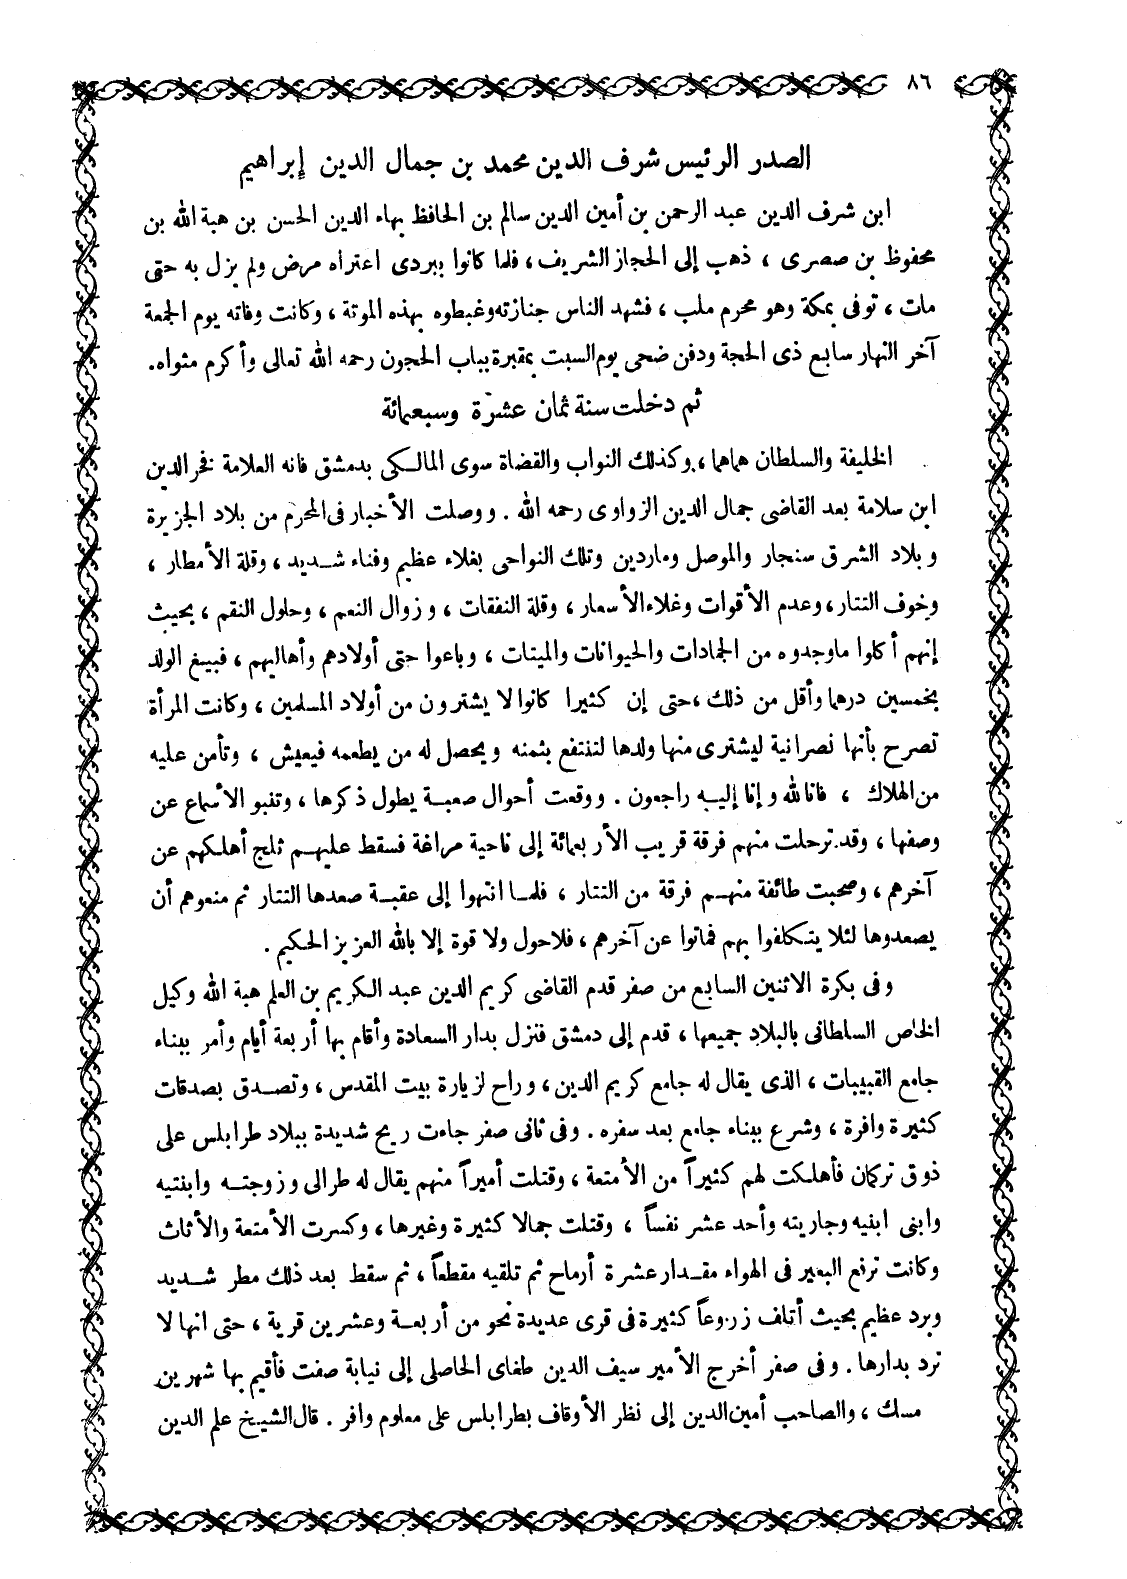 ٨٦
الصدر الرئيس شرف الدين محمد بن جمال الدين إبراهيم
ابن شرف الدين عبد الرحمن بن أمين الدين سالم بن الحافظ بهاء الدين الحسن بن هبة الله بن
محفوظ بن صصرى ، ذهب إلى الحجاز الشريف ، فلما كانوا ببردى اعتراه مرض ولم يزل به حتى
مات ، توفى بمكة وهو محرم ملب ، فشهد الناس جنازته وغبطوه بهذه الموتة ، وكانت وفاته يوم الجمعة
آخر النهار سابع ذى الحجة ودفن ضحى يوم السبت بمقبرة بباب الحجون رحمه الله تعالى وأكرم مثواه .
ثم دخلت سنة ثمان عشرة وسبعمائة
الخليفة والسلطان هماهما ، وكذلك النواب والقضاة سوى المالكى بدمشق فانه العلامة فخر الدين
ابن سلامة بعد القاضى جمال الدين الزواوى رحمه الله . ووصلت الأخبار فى المحرم من بلاد الجزيرة
وبلاد الشرق سنجار والموصل وماردين وتلك النواحى بغلاء عظيم وفناء شديد ، وقلة الأمطار ،
وخوف التتار ، وعدم الأقوات وغلاء الأسعار ، وقلة النفقات ، وزوال النعم ، وحلول النقم ، بحيث
إنهم أكلوا ماوجدوه من الجمادات والحيوانات والميتات ، وباعوا حتى أولادهم وأهاليهم ، فبيع الولد
بخمسين درهما وأقل من ذلك ، حتى إن كثيرا كانوا لا يشترون من أولاد المسلمين ، وكانت المرأة
تصرح بأنها نصرانية ليشترى منها ولدها لتنتفع بثمنه ويحصل له من يطعمه فيعيش ، وتأمن عليه
من الهلاك ، فانا لله وإنا إليه راجعون . ووقعت أحوال صعبة يطول ذكرها ، وتنبو الأسماع عن
وصفها ، وقد ترحلت منهم فرقة قريب الأربعمائة إلى ناحية مراغة فسقط عليهم ثلج أهلكهم عن
آخرهم ، وصحبت طائفة منهم فرقة من التتار ، فلما انتهوا إلى عقبة صعدها التتار ثم منعوهم أن
يصعدوها لئلا يتكلفوا بهم فماتوا عن آخرهم ، فلاحول ولا قوة إلا بالله العزيز الحكيم .
وفى بكرة الاثنين السابع من صفر قدم القاضى كريم الدين عبد الكريم بن العلم هبة الله وكيل
الخاص السلطانى بالبلاد جميعها ، قدم إلى دمشق فنزل بدار السعادة وأقام بها أربعة أيام وأمر ببناء
جامع القبيبات ، الذى يقال له جامع كريم الدين ، وراح لزيارة بيت المقدس ، وتصدق بصدقات
كثيرة وافرة ، وشرع ببناء جامع بعد سفره . وفى ثانى صفر جاءت ريح شديدة ببلاد طرابلس على
ذوق تركمان فأهلكت لهم كثيراً من الأمتعة ، وقتلت أميراً منهم يقال له طرالى وزوجته وابنتيه
وابنى ابنيه وجاريته وأحد عشر نفساً ، وقتلت جمالا كثيرة وغيرها ، وكسرت الأمتعة والأثاث
وكانت ترفع البعير فى الهواء مقدار عشرة أرماح ثم تلقيه مقطعاً ، ثم سقط بعد ذلك مطر شديد
وبرد عظيم بحيث أتلف زروعاً كثيرة فى قرى عديدة نحو من أربعة وعشرين قرية ، حتى انها لا
ترد بدارها . وفى صفر أخرج الأمير سيف الدين طغاى الحاصلى إلى نيابة صفت فأقيم بها شهرين
مسك ، والصاحب أمين الدين إلى نظر الأوقاف بطرابلس على معلوم وافر . قال الشيخ علم الدين